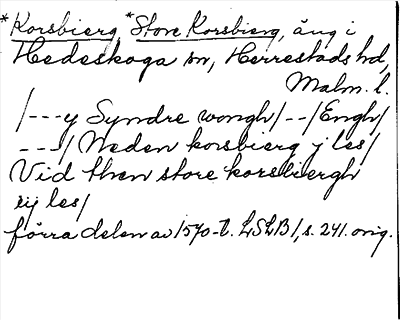 *Korsbierg, *Store Korsbierg, äng i
Hedeskoga sn, Herrestads hd,
Malm. l.
/---y Syndre wongh/--/Engh/
---/Neden korsbierg j les/
Vid then store korsbiergh
iij les/
förra delen av 1570-t. LSLB 1, s. 241. orig.